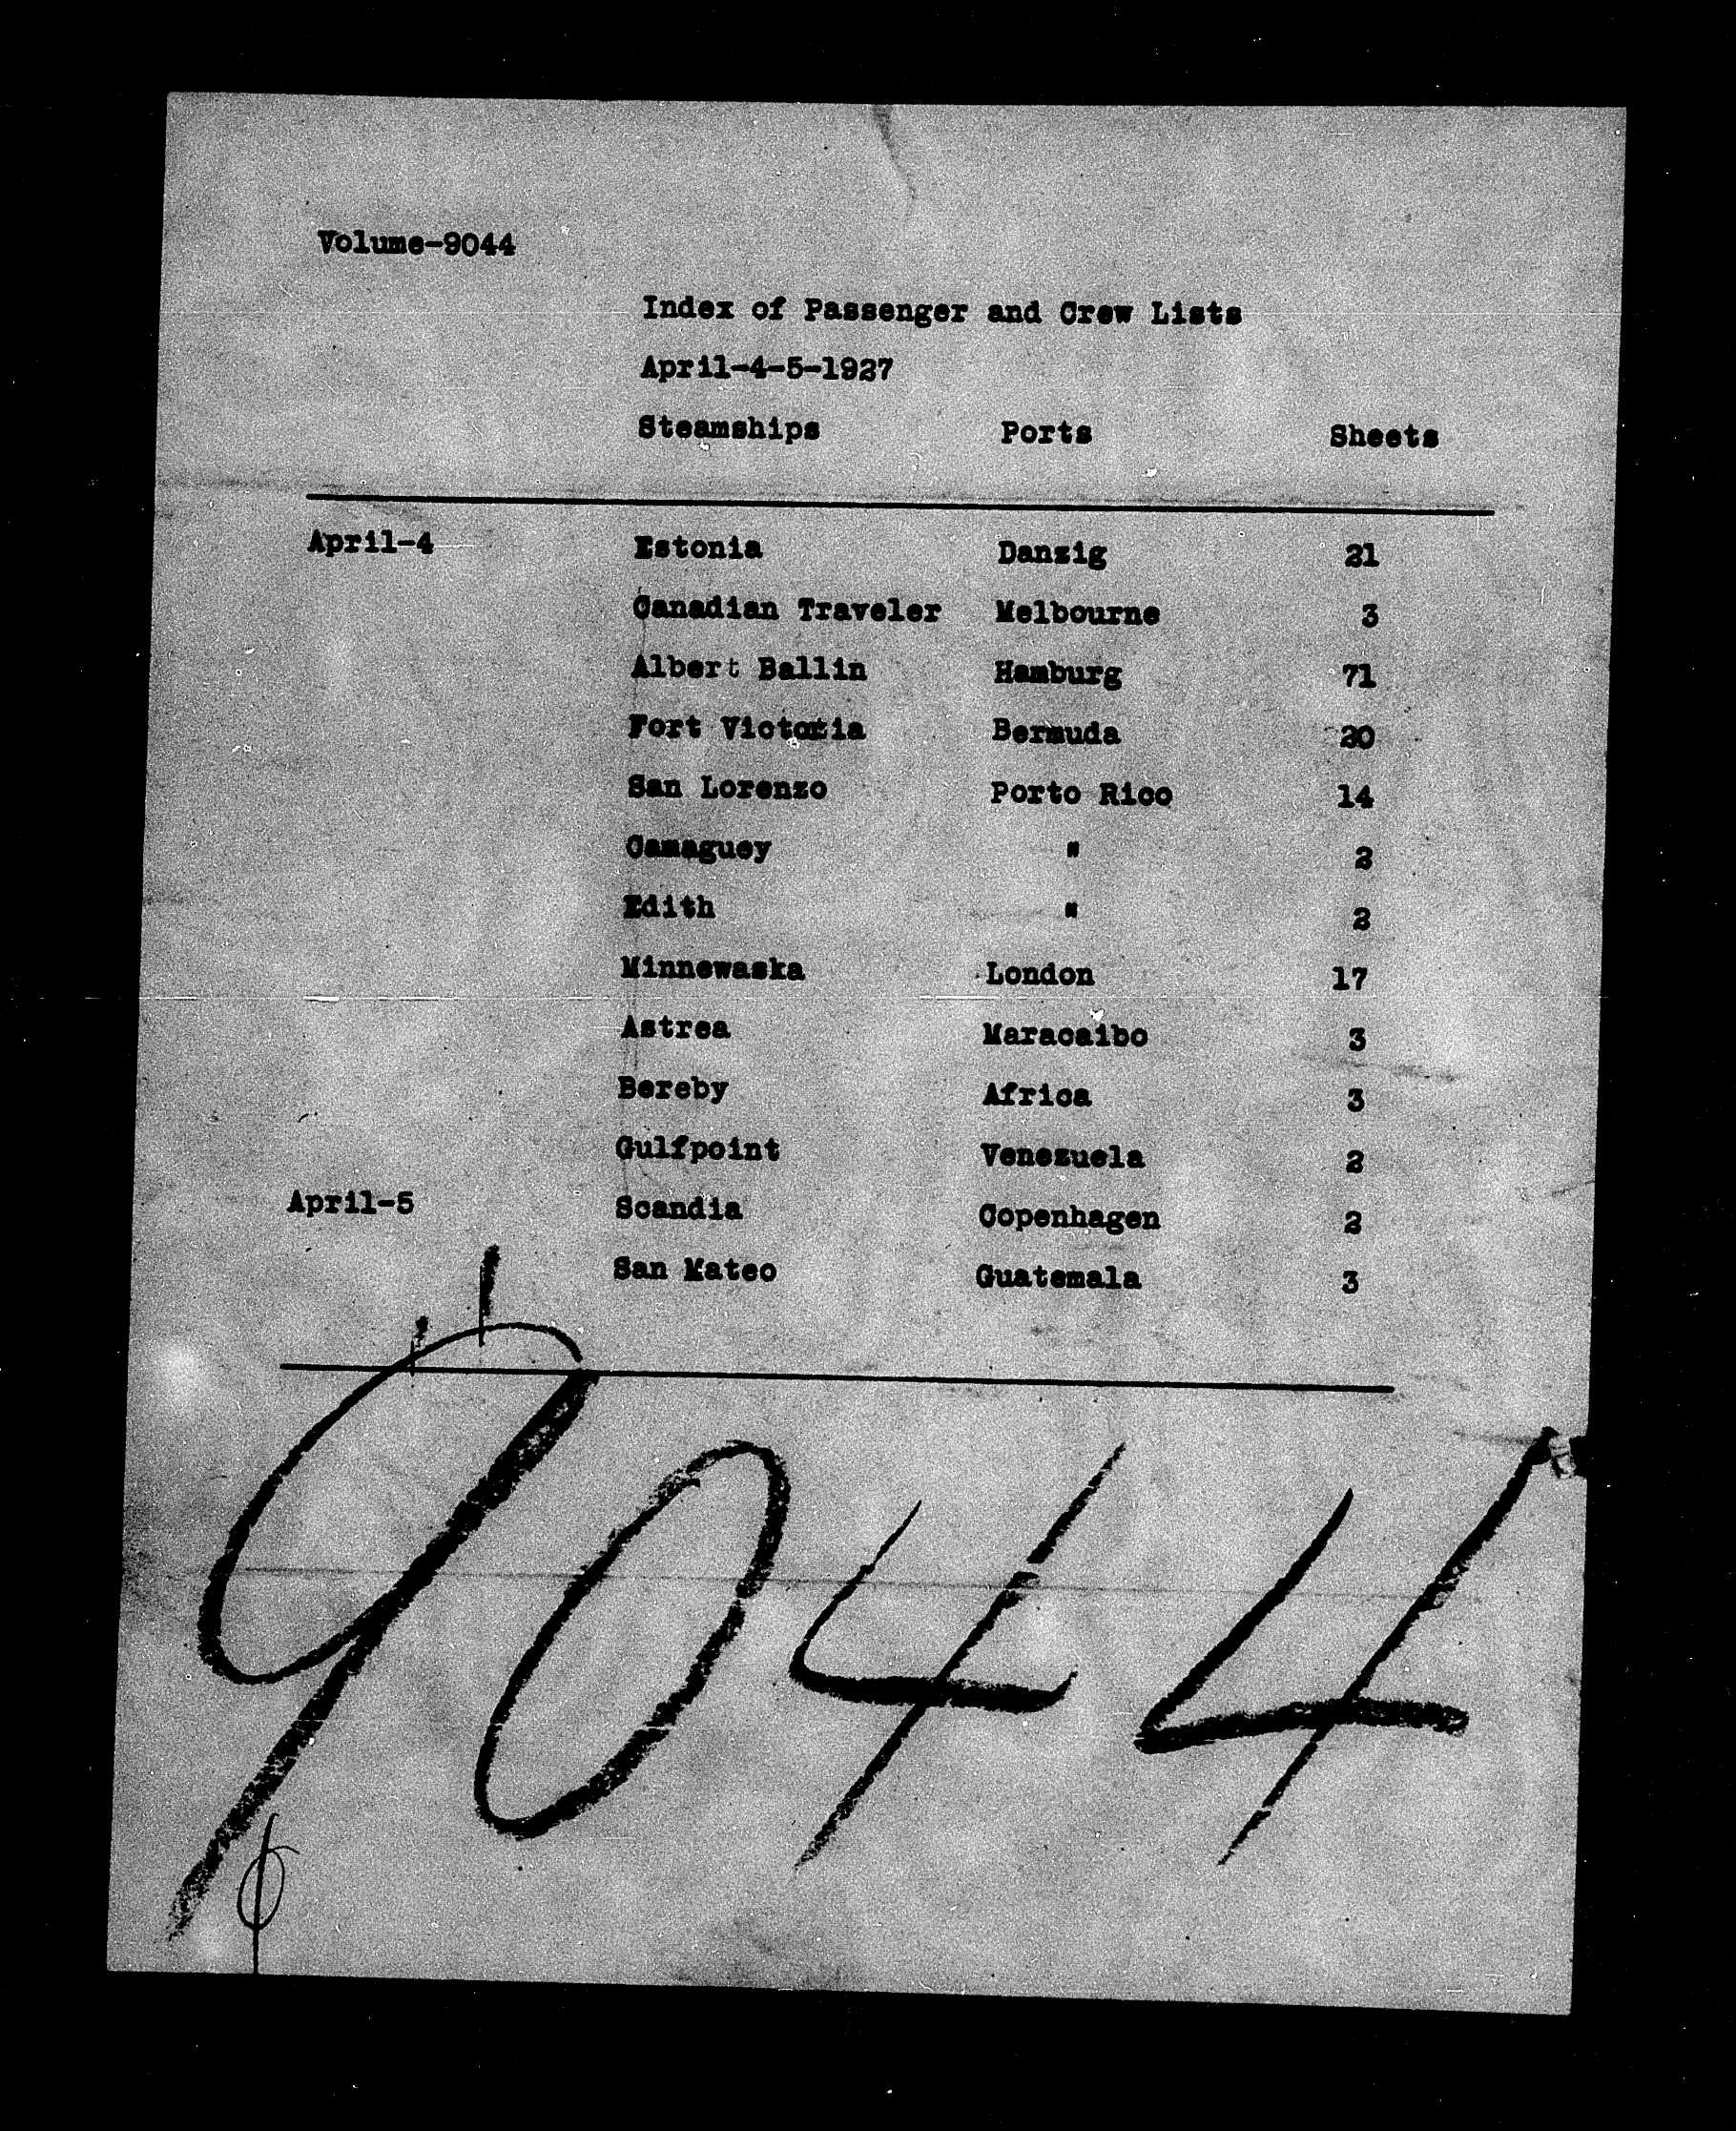 Volume-9044
Index of Passenger and Crew Lists
April-4-5-1927
Steamships Ports Sheets
April-4 Estonia Danzig 21
Canadian Traveler Melbourne 3
Albert Ballin Hamburg 71
Fort Victoria Bermuda 20
San Lorenzo Porto Rico 14
Camaguey " 2
Edith " 2
Minnewaska London 17
Astrea Maracaibo 3
Bereby Africa 3
Gulfpoint Venezuela 2
April-5 Scandia Copenhagen 2
San Mateo Guatemala 3
9044